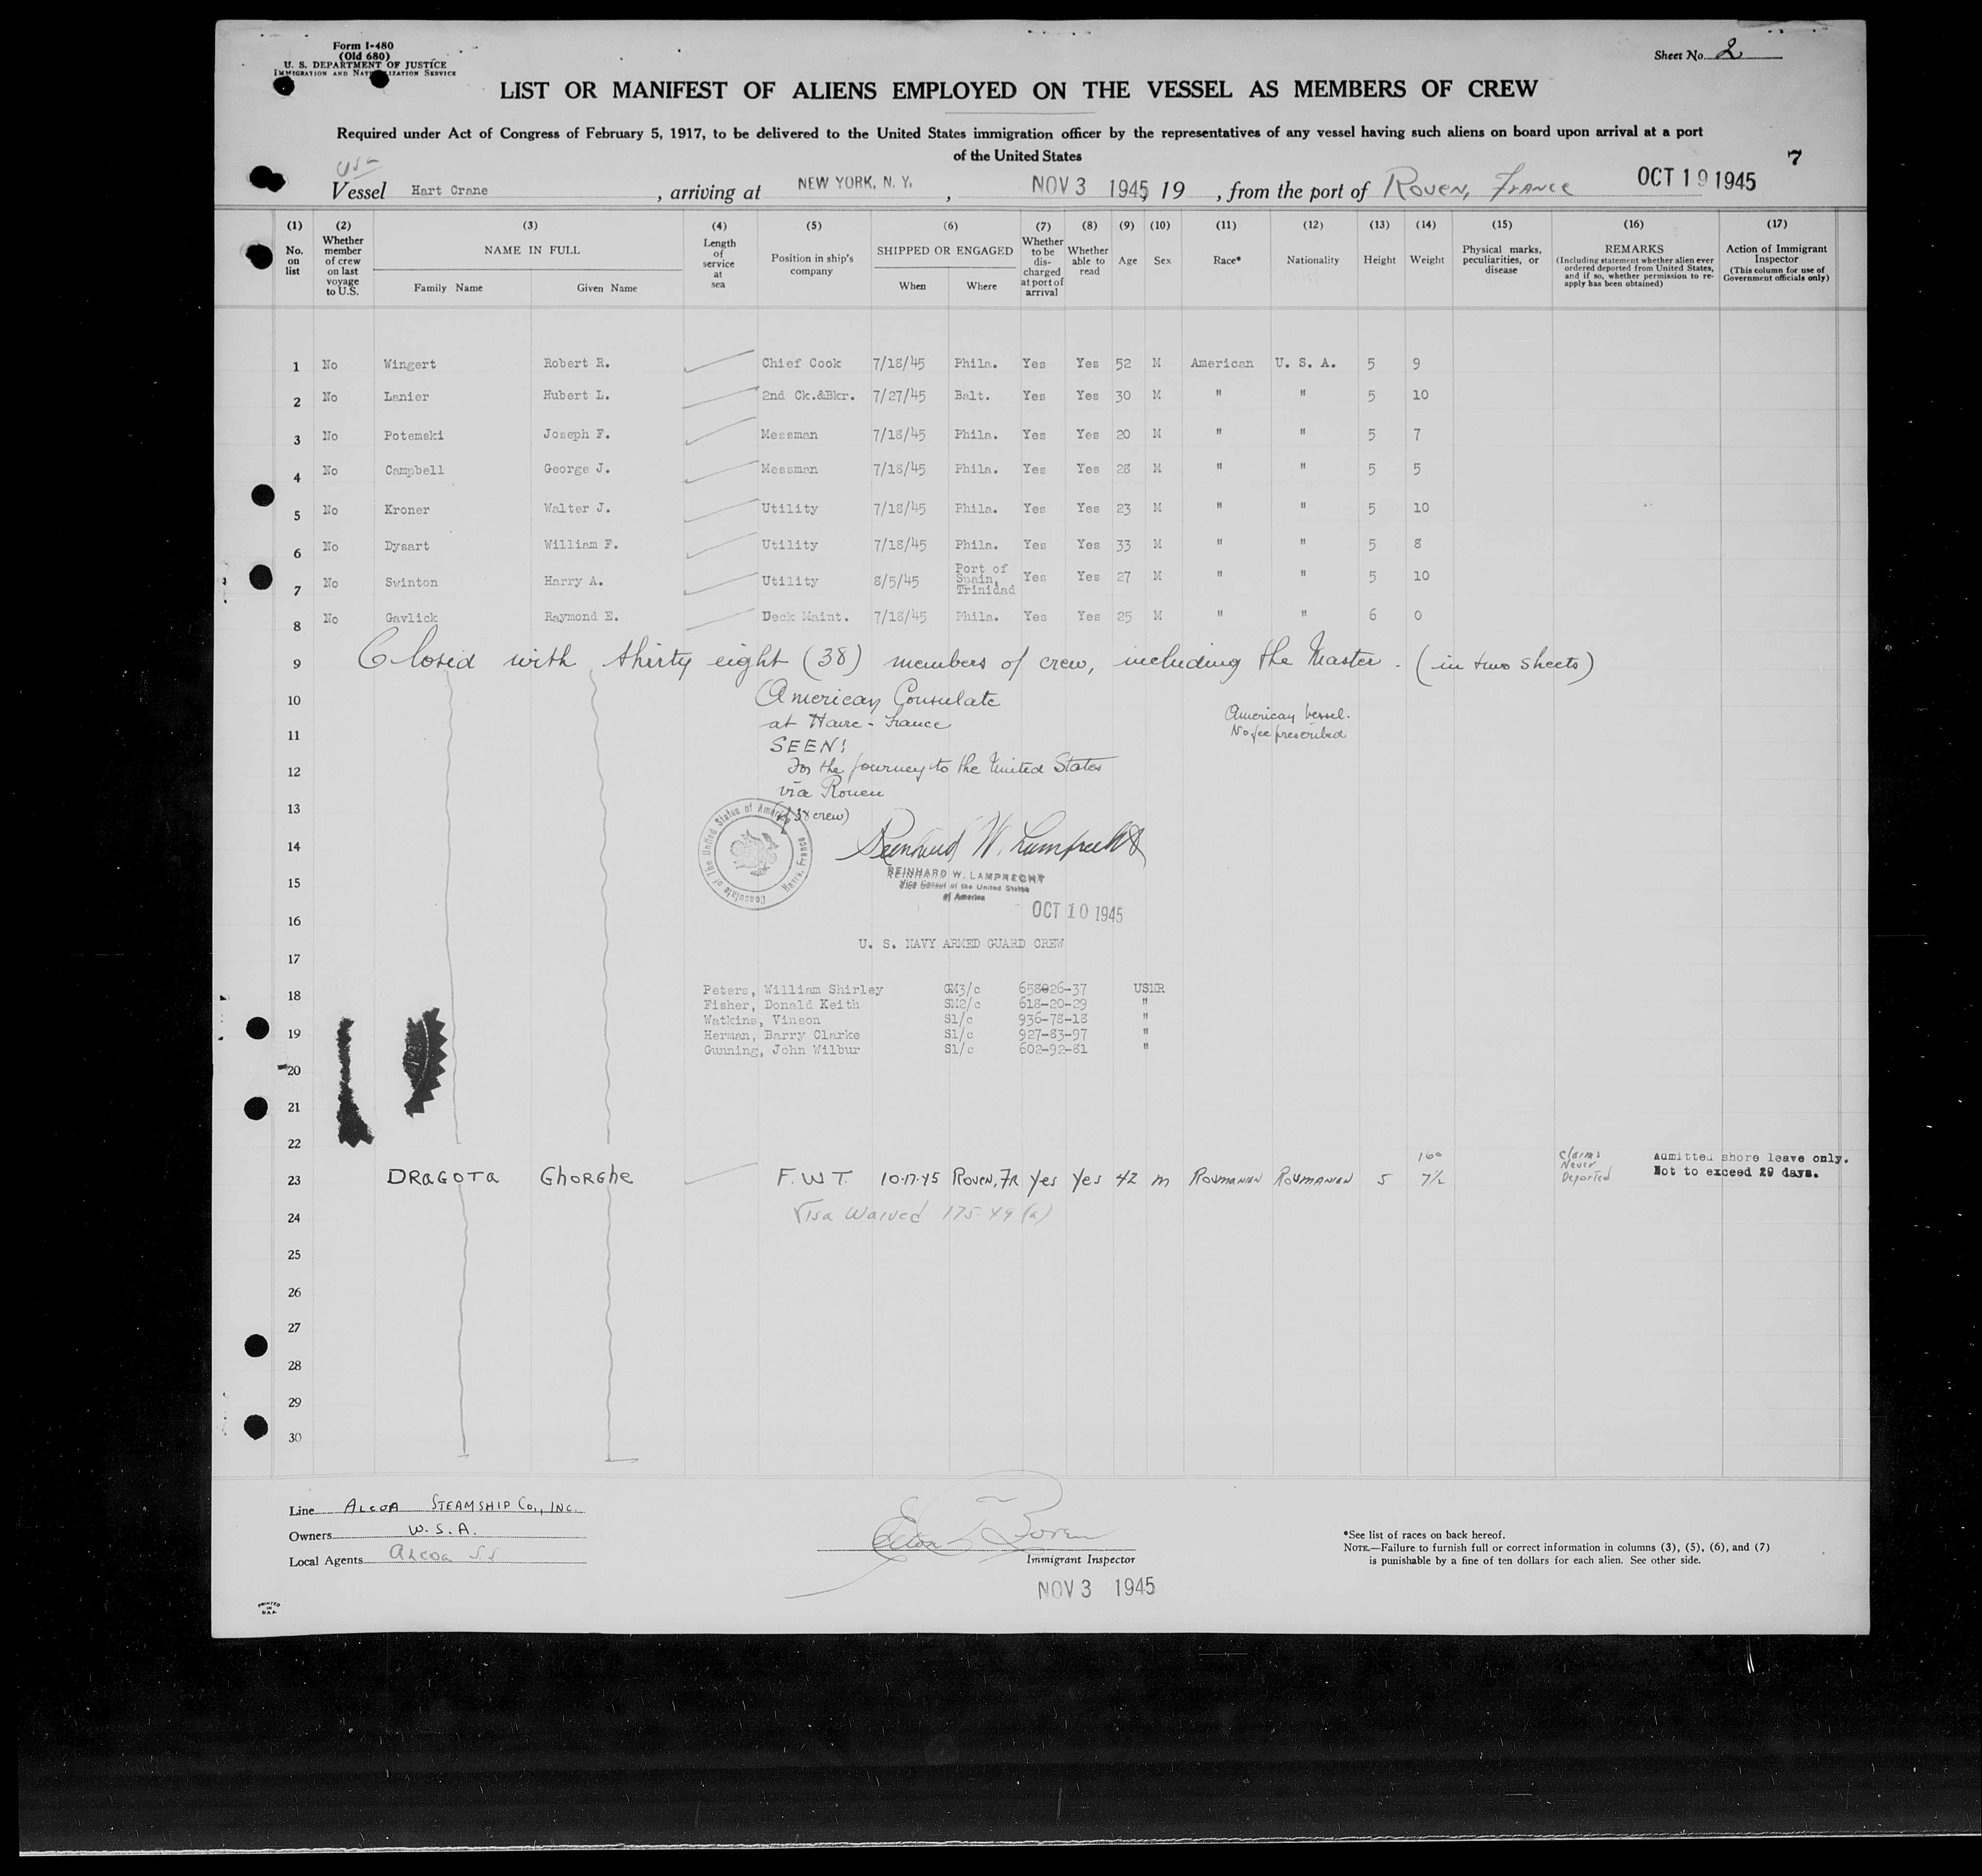 Form I-480
(Old 680)
U. S. DEPARTMENT OF JUSTICE
IMMIGRATION AND NATURALIZATION SERVICE
Sheet No. 2
LIST OR MANIFEST OF ALIENS EMPLOYED ON THE VESSEL AS MEMBERS OF CREW
Required under Act of Congress of February 5, 1917, to be delivered to the United States immigration officer by the representatives of any vessel having such aliens on board upon arrival at a port
of the United States
7
USA
Vessel Hart Crane, arriving at NEW YORK, N. Y., NOV 3 1945, 19 , from the port of Rouen, France OCT 19 1945
(1) No. on list
(2) Whether member of crew on last voyage to U.S.
(3) NAME IN FULL Family Name Given Name
(4) Length of service at sea
(5) Position in ship's company
(6) SHIPPED OR ENGAGED When Where
(7) Whether to be discharged at port of arrival
(8) Whether able to read
(9) Age
(10) Sex
(11) Race*
(12) Nationality
(13) Height
(14) Weight
(15) Physical marks, peculiarities, or disease
(16) REMARKS (Including statement whether alien ever ordered deported from United States, and if so, whether permission to re-apply has been obtained)
(17) Action of Immigrant Inspector (This column for use of Government officials only)
1 No Wingert Robert R. Chief Cook 7/18/45 Phila. Yes Yes 52 M American U. S. A. 5 9
2 No Lanier Hubert L. 2nd Ck.&Bkr. 7/27/45 Balt. Yes Yes 30 M " " 5 10
3 No Potemski Joseph F. Messman 7/18/45 Phila. Yes Yes 20 M " " 5 7
4 No Campbell George J. Messman 7/18/45 Phila. Yes Yes 28 M " " 5 5
5 No Kroner Walter J. Utility 7/18/45 Phila. Yes Yes 23 M " " 5 10
6 No Dysart William F. Utility 7/18/45 Phila. Yes Yes 33 M " " 5 8
7 No Swinton Harry A. Utility 8/5/45 Port of Spain, Trinidad Yes Yes 27 M " " 5 10
8 No Gavlick Raymond E. Deck Maint. 7/18/45 Phila. Yes Yes 25 M " " 6 0
9 Closed with thirty eight (38) members of crew, including the Master. (in two sheets)
10 American Consulate
at Havre - France
American vessel.
No fee prescribed
11
SEEN!
12 For the journey to the United States
via Rouen
13 (of 38 crew)
Consulate of The United States of America Havre, France
14 Reinhard W. Lamprecht
15 REINHARD W. LAMPRECHT
Vice Consul of the United States
of America
OCT 10 1945
16
U. S. NAVY ARMED GUARD CREW
17
18 Peters, William Shirley GM3/c 658026-37 USNR
Fisher, Donald Keith SM2/c 618-20-29 "
Watkins, Vinson S1/c 936-78-18 "
19 Herman, Barry Clarke S1/c 927-83-97 "
Gunning, John Wilbur S1/c 602-92-81 "
20
21
22
23 DRAGOTA GhORGhe F.W.T. 10-17-45 Rouen, FR Yes Yes 42 M ROUMANIAN ROUMANIAN 5 7½ 160 Claims Never Deported Admitted shore leave only. Not to exceed 29 days.
24 Visa Waived 175.49 (a)
25
26
27
28
29
30
Line ALCOA STEAMSHIP CO., INC.
Owners W.S.A.
Local Agents Alcoa S.S
Immigrant Inspector
NOV 3 1945
*See list of races on back hereof.
NOTE.—Failure to furnish full or correct information in columns (3), (5), (6), and (7)
is punishable by a fine of ten dollars for each alien. See other side.
PRINTED
IN
U.S.A.